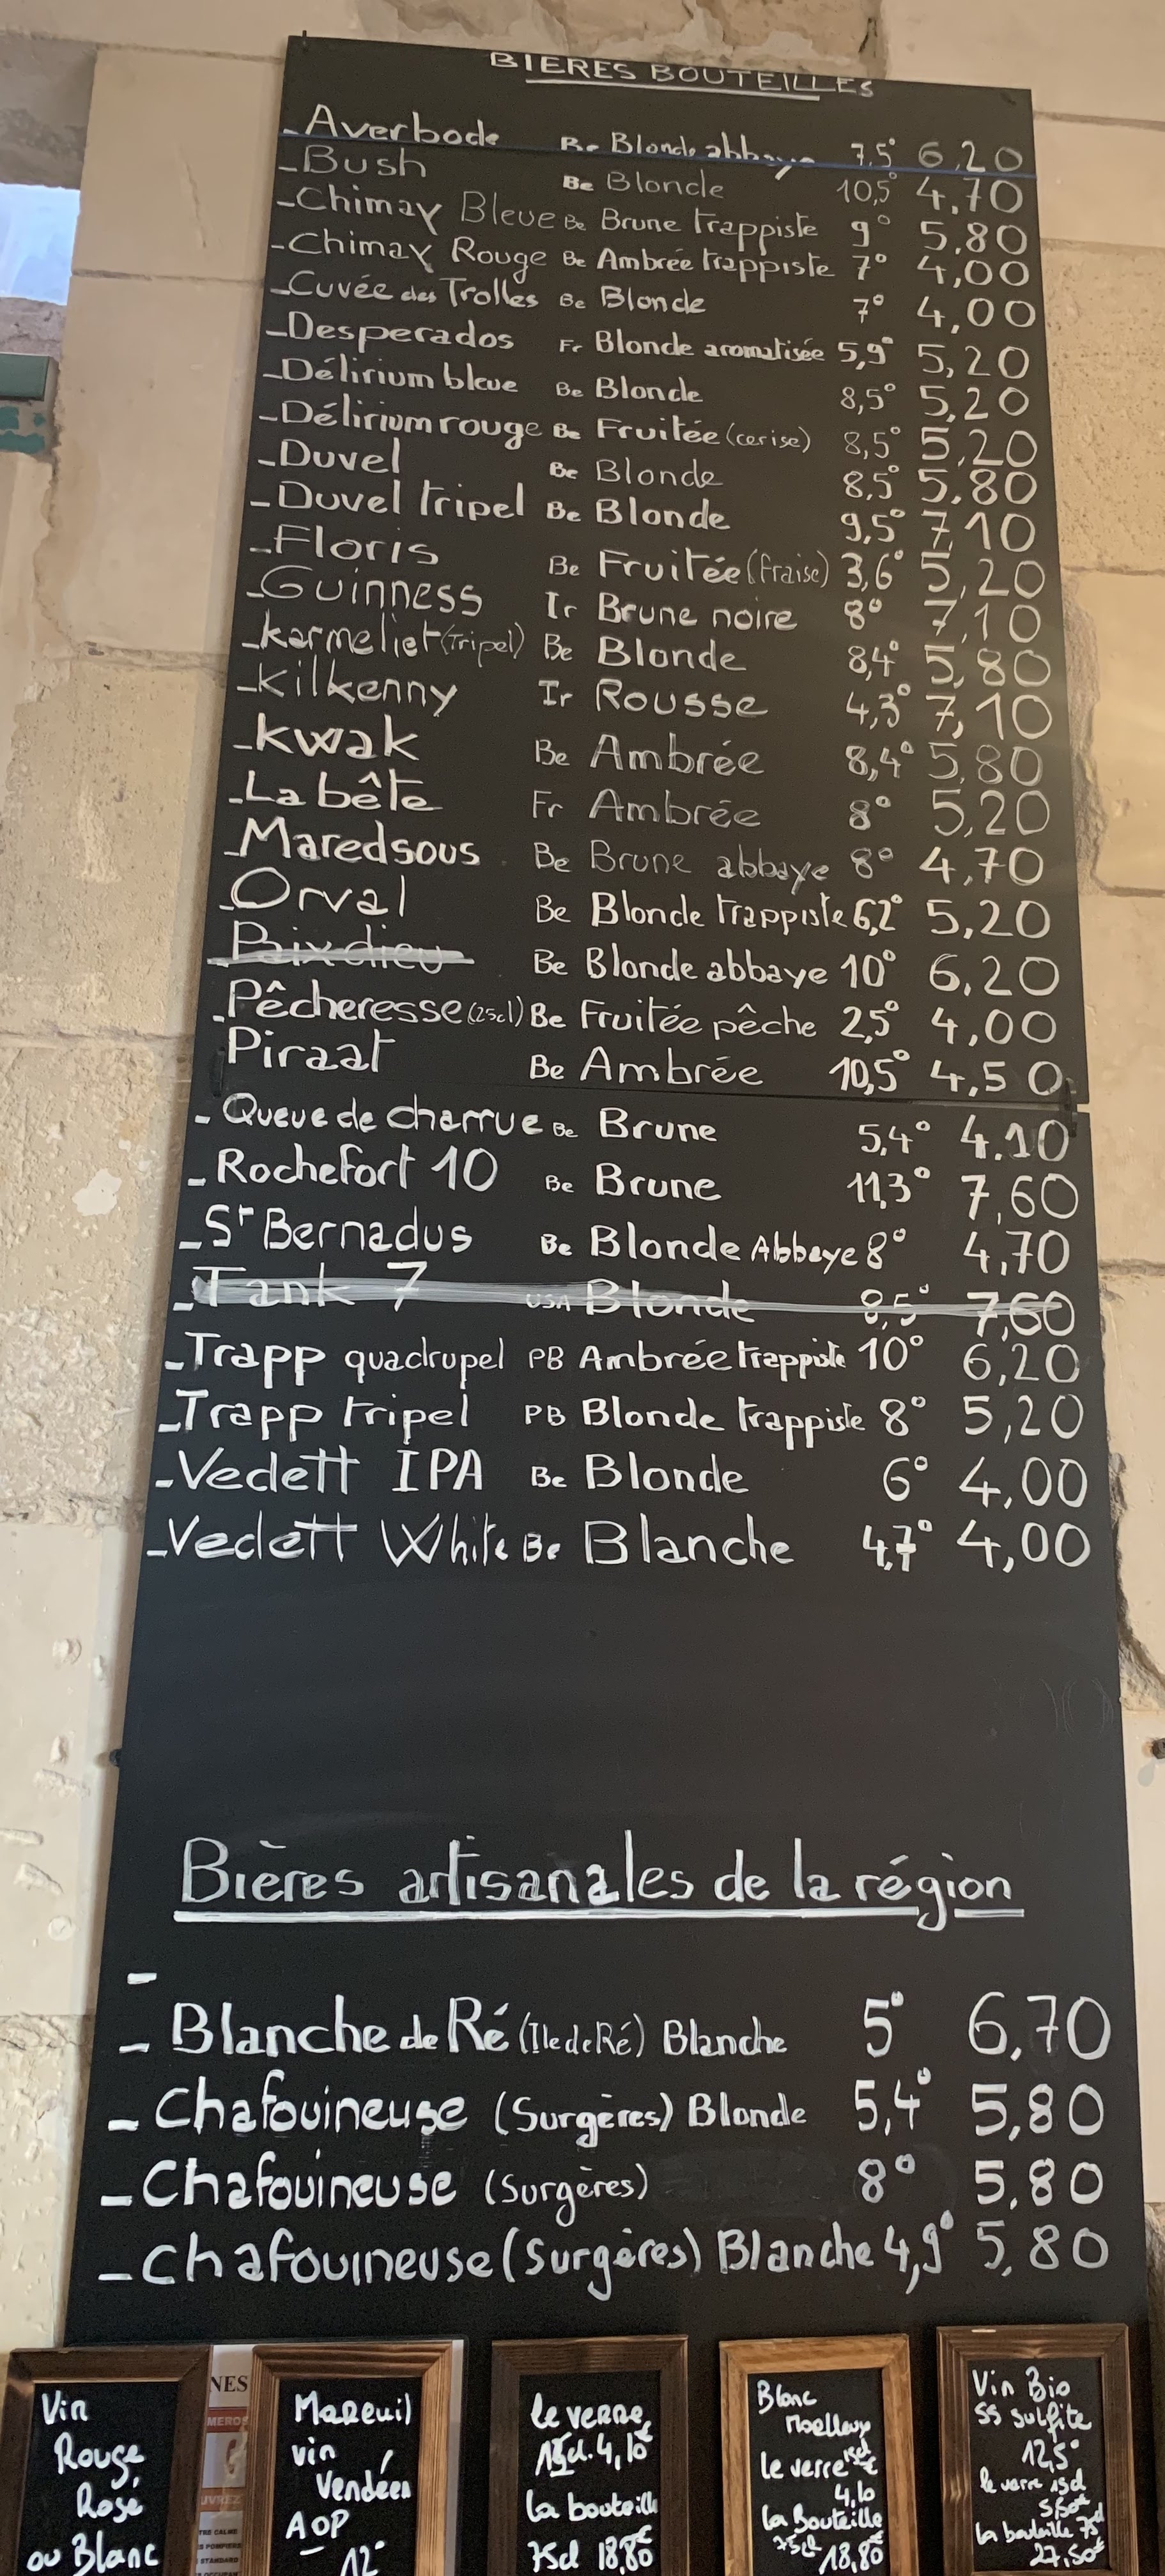 BIERES BOUTEILLES
-Averbode Be Blonde abbaye 7,5° 6,20
-Bush Be Blonde 10,5° 4,70
-Chimay Bleue Be Brune trappiste 9° 5,80
-Chimay Rouge Be Ambrée trappiste 7° 4,00
-Cuvée des Trolles Be Blonde 7° 4,00
-Desperados Fr Blonde aromatisée 5,9° 5,20
-Délirium bleue Be Blonde 8,5° 5,20
-Délirium rouge Be Fruitée (cerise) 8,5° 5,20
-Duvel Be Blonde 8,5° 5,80
-Duvel tripel Be Blonde 9,5° 7,10
-Floris Be Fruitée (fraise) 3,6° 5,20
-Guinness Ir Brune noire 8° 7,10
-karmeliet (Tripel) Be Blonde 8,4° 5,80
-Kilkenny Ir Rousse 4,3° 7,10
-kwak Be Ambrée 8,4° 5,80
-La bête Fr Ambrée 8° 5,20
-Maredsous Be Brune abbaye 8° 4,70
-Orval Be Blonde trappiste 6,2° 5,20
-Paixdieu Be Blonde abbaye 10° 6,20
-Pêcheresse (25cl) Be Fruitée pêche 2,5° 4,00
Piraat Be Ambrée 10,5° 4,50
- Queue de charrue Be Brune 5,4° 4.10
- Rochefort 10 Be Brune 11,3° 7,60
- St Bernadus Be Blonde Abbaye 8° 4,70
-Tank 7 USA Blonde 8,5° 7,60
-Trapp quadrupel PB Ambrée trappiste 10° 6,20
-Trapp tripel PB Blonde trappiste 8° 5,20
-Vedett IPA Be Blonde 6° 4,00
-Vedett White Be Blanche 4,7° 4,00
Bières artisanales de la région
-
- Blanche de Ré (Ile de Ré) Blanche 5° 6,70
- Chafouineuse (Surgères) Blonde 5,4° 5,80
- Chafouineuse (Surgères) 8° 5,80
- Chafouineuse (Surgères) Blanche 4,9° 5,80
Vin
Rouge
Rosé
ou Blanc
NES
MEROS
UVREZ
Mareuil
vin
Vendéen
AOP
12°
le verre
15cl. 4,10€
la bouteille
75cl 18,80€
Blanc
Moelleux
le verre 15cl
4,10
la Bouteille
75cl 18,80€
Vin Bio
SS sulfite
12,5°
le verre 15cl
5,80€
la bouteille 75cl
27,50€